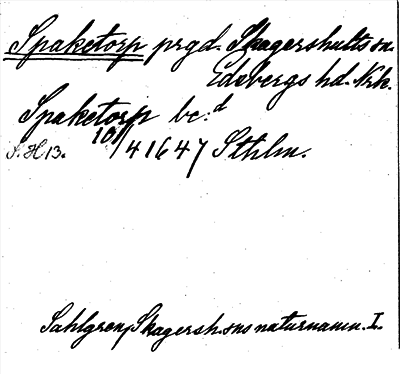 Spaketorp prgd. Skagershults sn.
Edsbergs hd. Nrk.
Spaketorp bc.d
S. H 13. 101/41647 Sthlm.
Sahlgren, Skagersh.sns naturnamn. I.